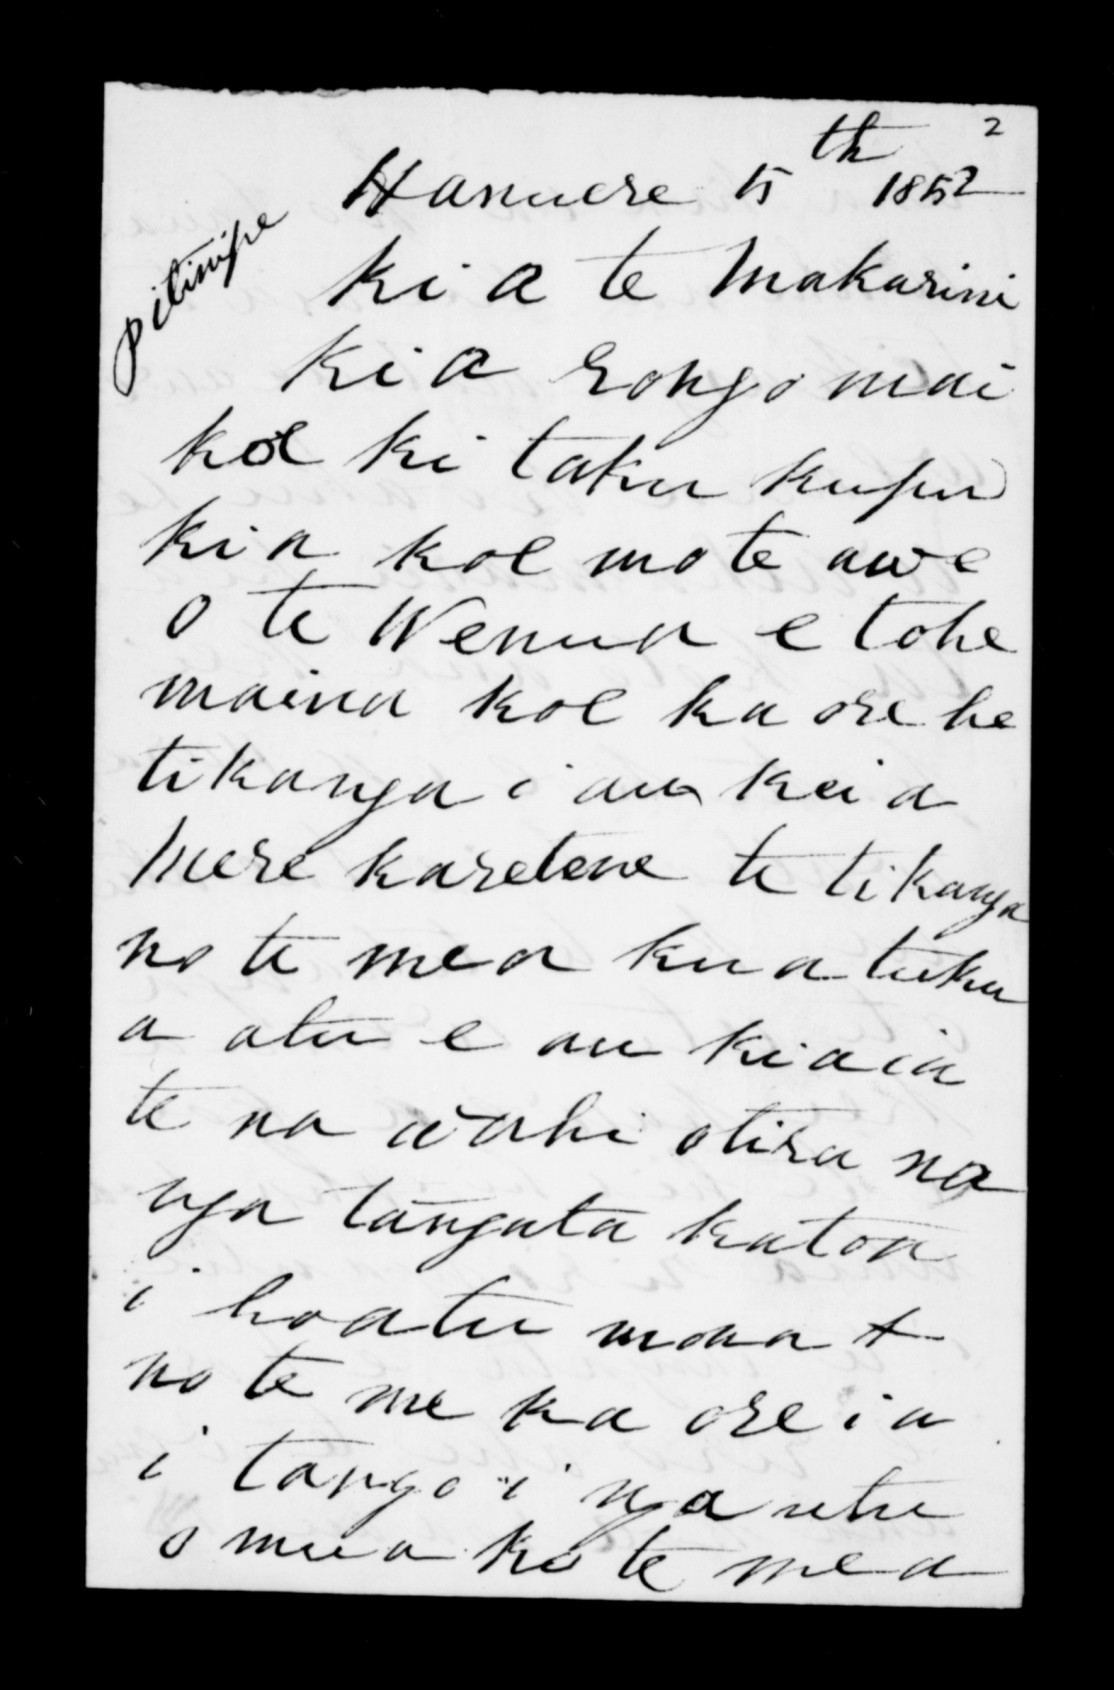 2
Hanuere 15th 1852
pitinipe
ki a te Makarini
ki a rongo mai
koe ki taku kupu
ki a koe mo te awe
o te Wenua e tohe
maina koe ka ore he
tikanga i au kei a
Mere karetene te tikanga
no te mea ku a tuku
a atu e au ki a ia
te na wahi otira na
nga tangata katoa
i hoatu mona +
no te me ka ore i a
i tango i nga utu
o mua ko te mea